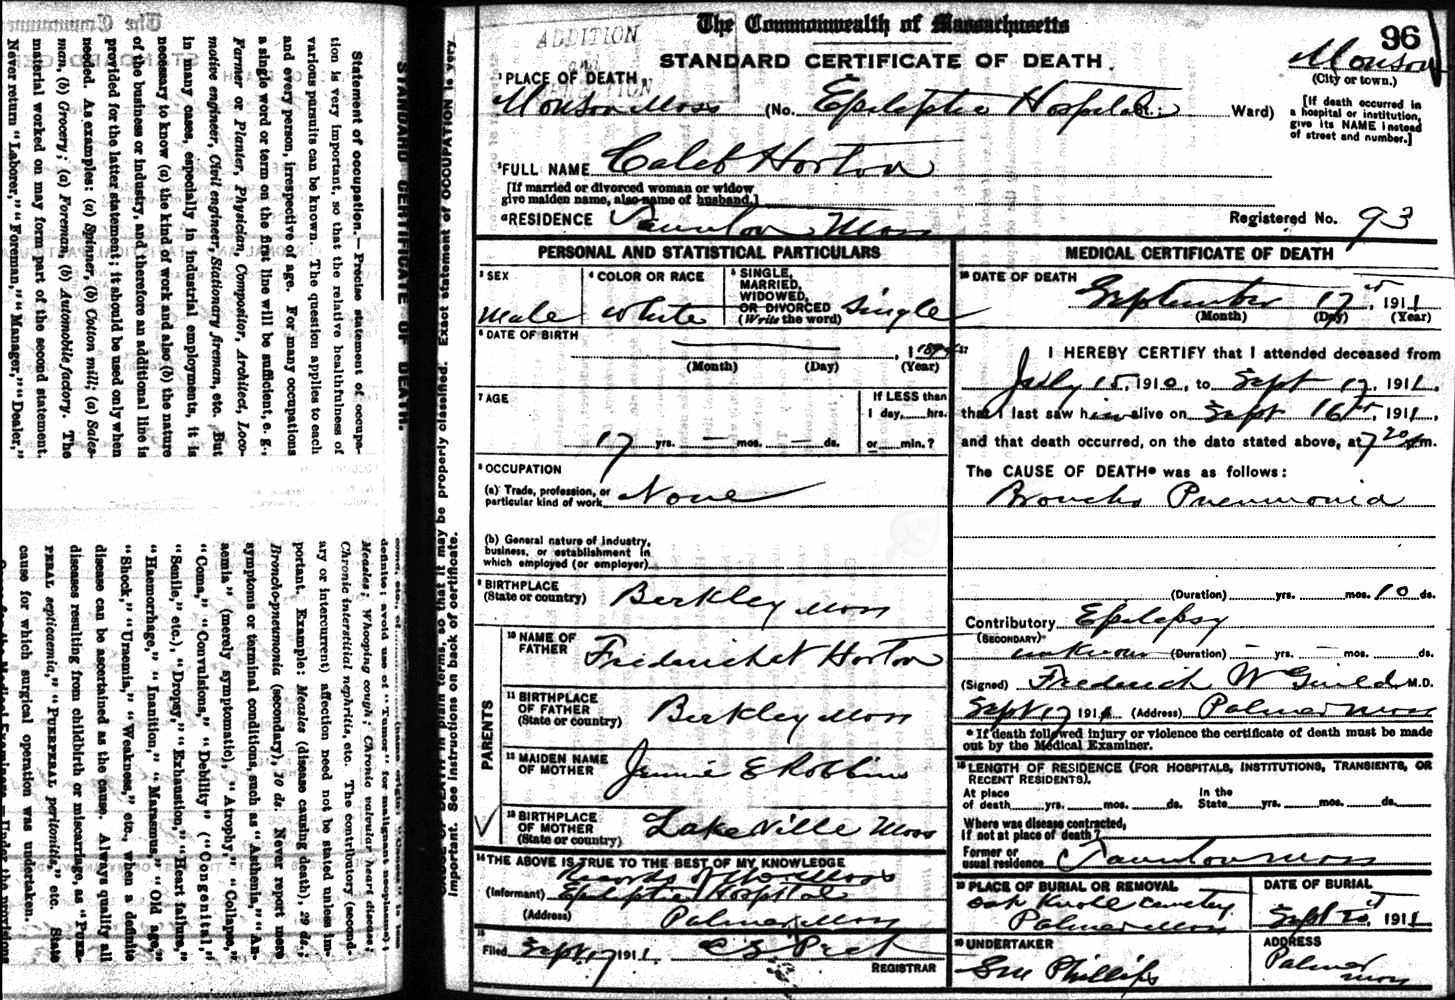 The Commonwealth of Massachusetts
96
STANDARD CERTIFICATE OF DEATH.
Monson
(City or town.)
ADDITION
and
1 PLACE OF DEATH,
Monson Mass (No. Epileptic Hospital Ward)
[If death occurred in
a hospital or institution,
give its NAME instead
of street and number.]
2 FULL NAME Caleb Horton
[If married or divorced woman or widow
give maiden name, also name of husband.]
RESIDENCE Taunton Mass
Registered No. 93
PERSONAL AND STATISTICAL PARTICULARS
3 SEX
Male
4 COLOR OR RACE
White
5 SINGLE,
MARRIED,
WIDOWED,
OR DIVORCED
(Write the word)
Single
6 DATE OF BIRTH
(Month) (Day) (Year)
7 AGE
17 yrs. — mos. — ds.
If LESS than
1 day, hrs.
or min.?
8 OCCUPATION
(a) Trade, profession, or
particular kind of work None
(b) General nature of industry,
business, or establishment in
which employed (or employer)
9 BIRTHPLACE
(State or country) Berkley Mass
PARENTS
10 NAME OF
FATHER Horton
11 BIRTHPLACE
OF FATHER
(State or country) Berkley Mass
12 MAIDEN NAME
OF MOTHER Jennie E Robbins
13 BIRTHPLACE
OF MOTHER
(State or country) Lakeville Mass
14 THE ABOVE IS TRUE TO THE BEST OF MY KNOWLEDGE
Records of Mass
(Informant) Epileptic Hospital
(Address) Palmer Mass
15
Filed Sept. 17 1911.
REGISTRAR
MEDICAL CERTIFICATE OF DEATH
16 DATE OF DEATH
September 17 1911
(Month) (Day) (Year)
17 I HEREBY CERTIFY that I attended deceased from
July 15, 1910, to Sept 17, 1911,
that I last saw him alive on Sept 16, 1911,
and that death occurred, on the date stated above, at 7 20 m.
The CAUSE OF DEATH* was as follows:
Broncho Pneumonia
(Duration) yrs. mos. 10 ds.
Contributory Epilepsy
(SECONDARY)
unknown (Duration) — yrs. — mos. ds.
(Signed) Frederick W Guild M.D.
Sept 17 1911 (Address) Palmer Mass
* If death followed injury or violence the certificate of death must be made
out by the Medical Examiner.
18 LENGTH OF RESIDENCE (FOR HOSPITALS, INSTITUTIONS, TRANSIENTS, OR
RECENT RESIDENTS).
At place
of death yrs. mos. ds.
In the
State yrs. mos. ds.
Where was disease contracted,
If not at place of death?
Former or
usual residence Taunton Mass
19 PLACE OF BURIAL OR REMOVAL
Oak Knoll Cemetery
Palmer Mass
DATE OF BURIAL
Sept 20 1911
20 UNDERTAKER
Phillips
ADDRESS
Palmer
Mass
STANDARD CERTIFICATE OF DEATH.
Statement of occupation. — Precise statement of occupa-
tion is very important, so that the relative healthfulness of
various pursuits can be known. The question applies to each
and every person, irrespective of age. For many occupations
a single word or term on the first line will be sufficient, e. g.,
Farmer or Planter, Physician, Compositor, Architect, Loco-
motive engineer, Civil engineer, Stationary fireman, etc. But
in many cases, especially in industrial employments, it is
necessary to know (a) the kind of work and also (b) the nature
of the business or industry, and therefore an additional line is
provided for the latter statement: it should be used only when
needed. As examples: (a) Spinner, (b) Cotton mill; (a) Sales-
man, (b) Grocery; (a) Foreman, (b) Automobile factory. The
material worked on may form part of the second statement.
Never return "Laborer," "Foreman," "Manager," "Dealer,"
definite; avoid use of "Tumor" for malignant neoplasms);
Measles; Whooping cough; Chronic valvular heart disease;
Chronic interstitial nephritis, etc. The contributory (second-
ary or intercurrent) affection need not be stated unless im-
portant. Example: Measles (disease causing death), 29 ds.;
Broncho-pneumonia (secondary), 10 ds. Never report mere
symptoms or terminal conditions, such as "Asthenia," "An-
aemia" (merely symptomatic), "Atrophy," "Collapse,"
"Coma," "Convulsions," "Debility" ("Congenital,"
"Senile," etc.), "Dropsy," "Exhaustion," "Heart failure,"
"Haemorrhage," "Inanition," "Marasmus," "Old age,"
"Shock," "Uraemia," "Weakness," etc., when a definite
disease can be ascertained as the cause. Always qualify all
diseases resulting from childbirth or miscarriage, as "PUER-
PERAL septicaemia," "PUERPERAL peritonitis," etc. State
cause for which surgical operation was undertaken.
important. See instructions on back of certificate.